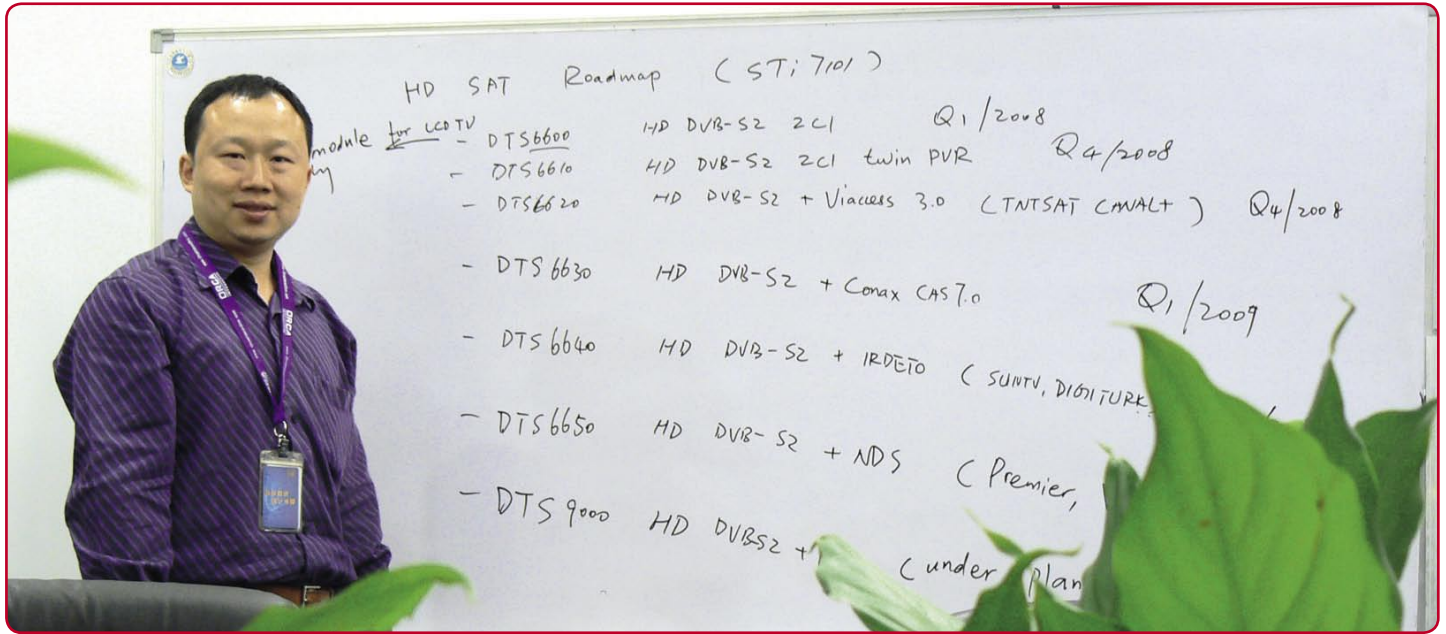 HD SAT Roadmap (STi7101)
module for LCD TV
- DTS6600 HD DVB-S2 2CI Q1/2008
- DTS6610 HD DVB-S2 2CI twin PVR Q4/2008
- DTS6620 HD DVB-S2 + Viaccess 3.0 (TNTSAT CANAL+) Q4/2008
- DTS6630 HD DVB-S2 + Conax CAS7.0 Q1/2009
- DTS6640 HD DVB-S2 + IRDETO (SUNTV, DIGITURK,
- DTS6650 HD DVB-S2 + NDS (Premier,
- DTS9000 HD DVBS2 + (under plan
ORCA
ORCA